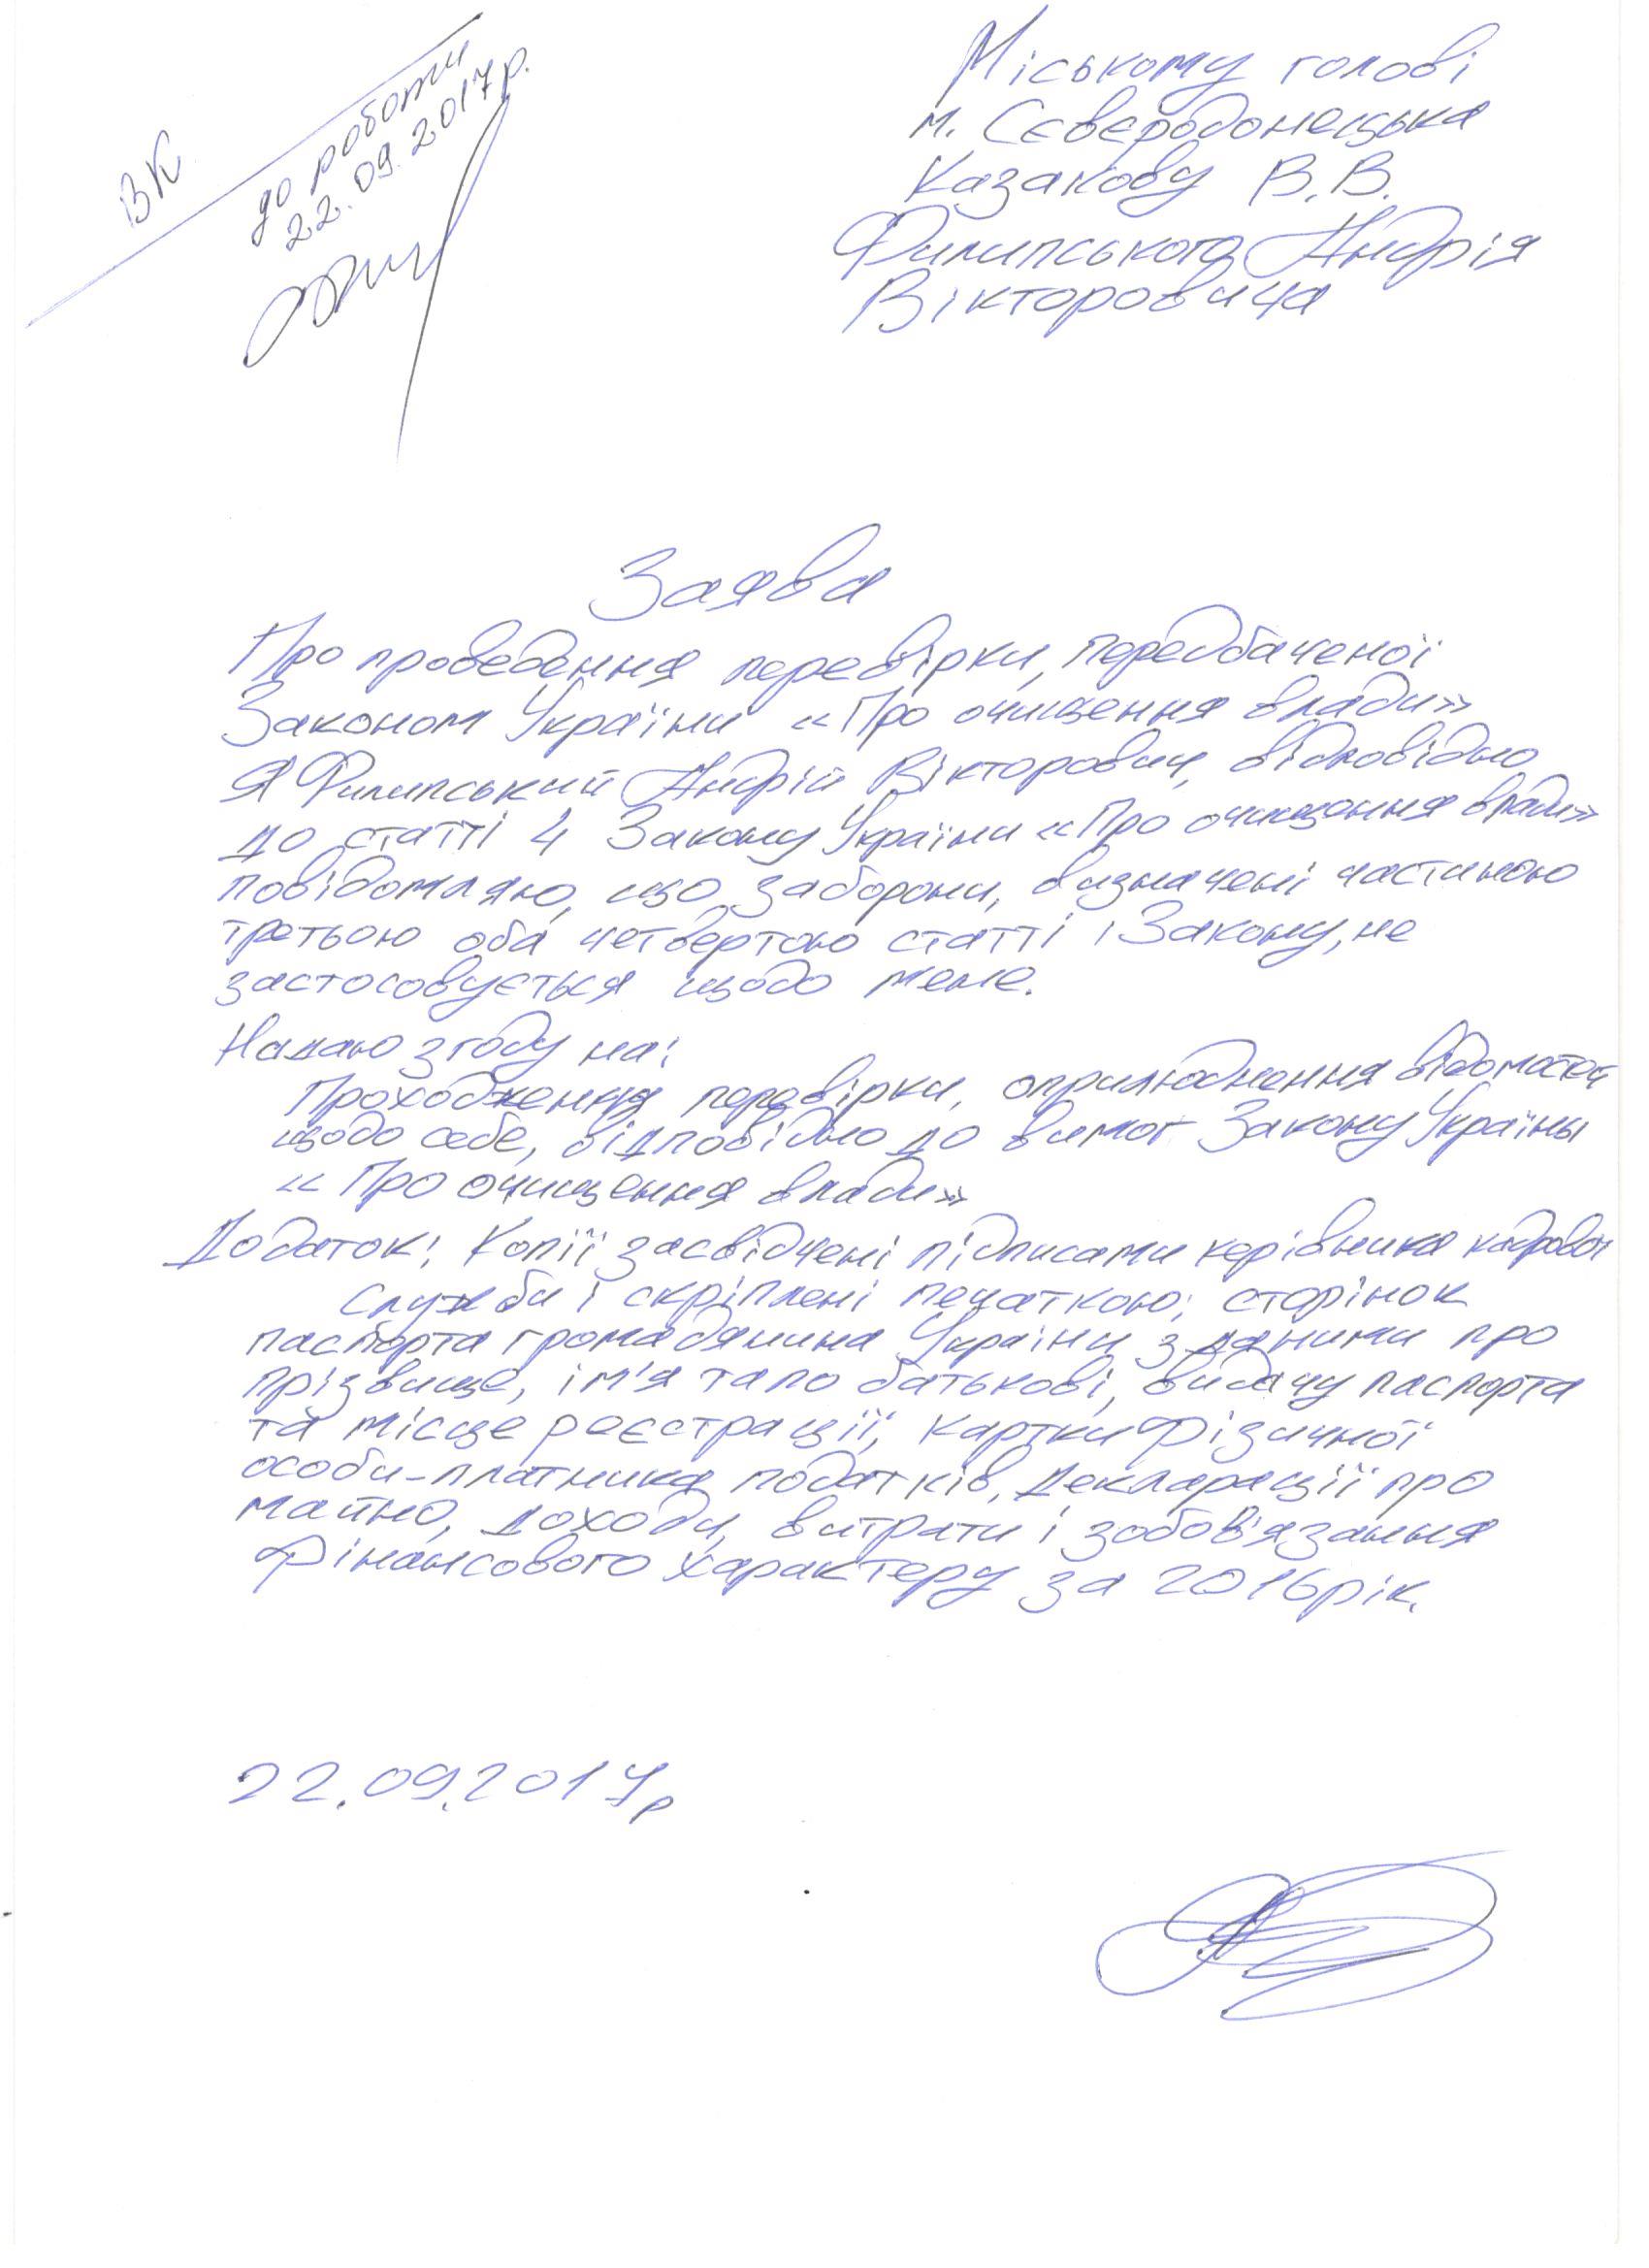 ВК
до роботи
22.09.2017р.
Міському голові
м. Сєвєродонецька
Казакову В.В.
Филипського Андрія
Вікторовича
Заява
Про проведення перевірки, передбаченої
Законом України «Про очищення влади»
Я Филипський Андрій Вікторович, відповідно
до статті 4 Закону України «Про очищення влади»
повідомляю, що заборони, визначені частиною
третьою оба четвертою статті 1 Закону, не
застосовується щодо мене.
Надаю згоду на:
Проходження перевірки, оприлюднення відомостей
щодо себе, відповідно до вимог Закону Украіны
«Про очищення влади»
Додаток: Копії засвідчені підписами керівника кадрової
служби і скріплені печаткою: сторінок
паспорта громадянина України з даними про
прізвище, ім'я та по батькові, видачу паспорта
та місце реєстрації, картки фізичної
особи-платника податків, декларації про
майно, доходи, витрати і зобов'язання
фінансового характеру за 2016рік.
22.09.2017р